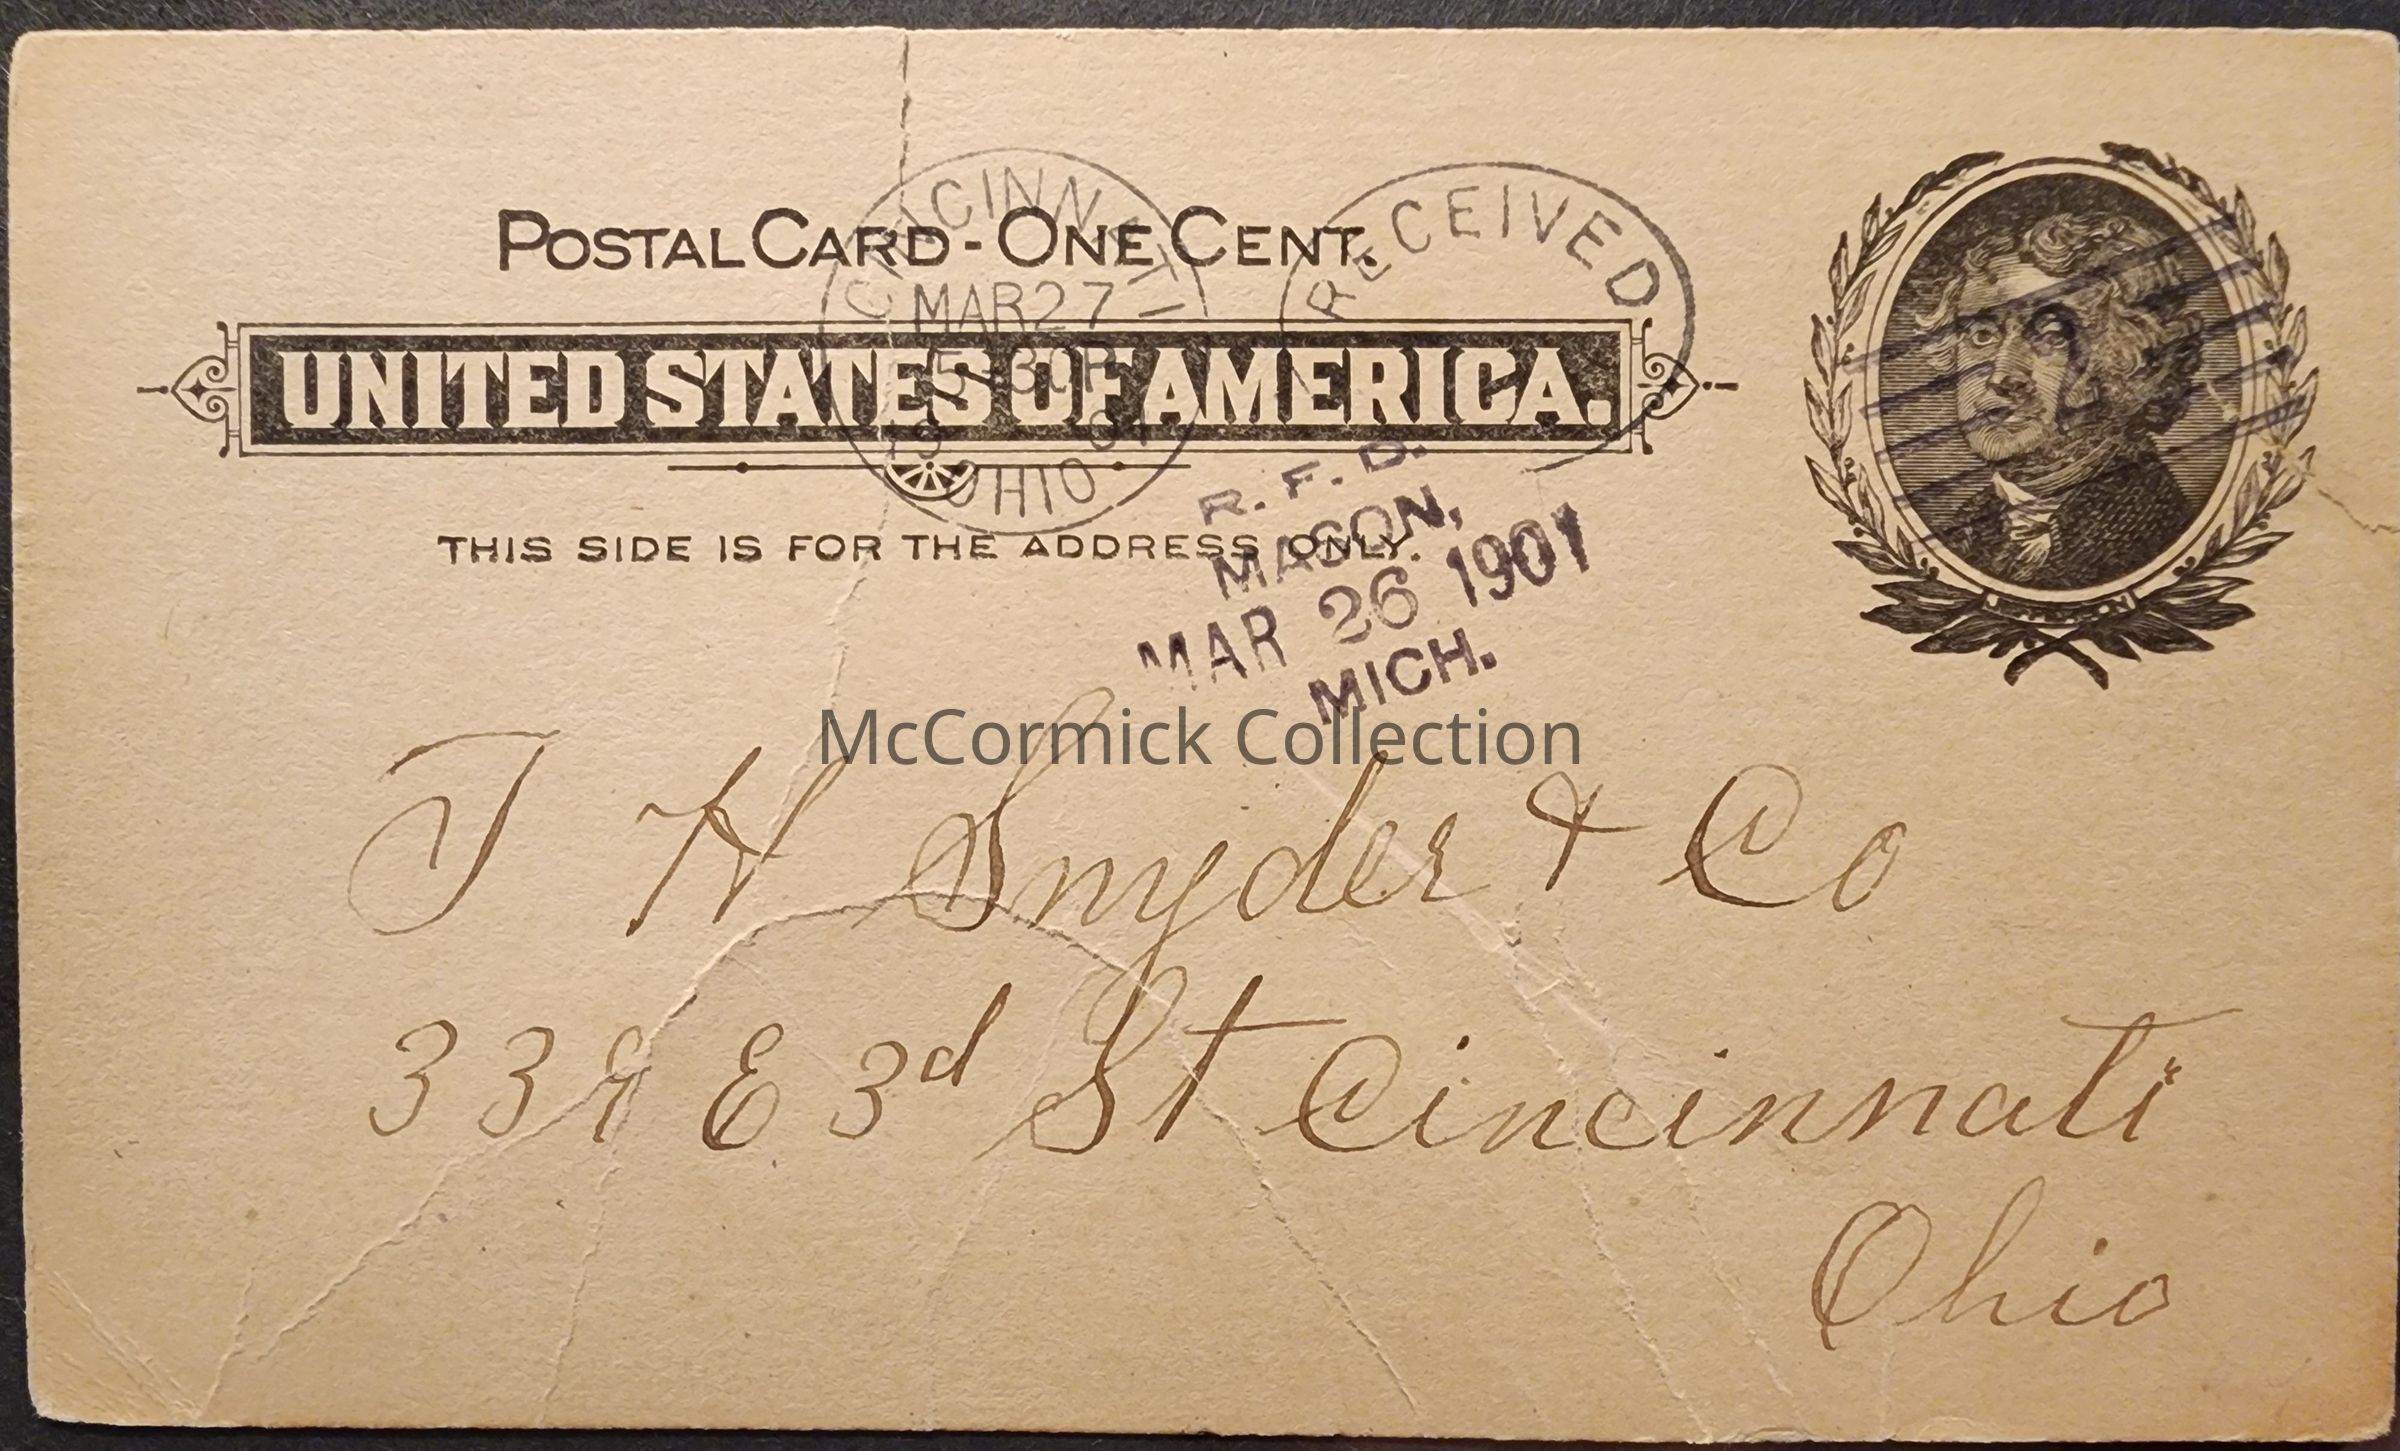 POSTAL CARD - ONE CENT.
UNITED STATES OF AMERICA.
THIS SIDE IS FOR THE ADDRESS ONLY.
CINCINNATI
MAR 27
5-30P
19 01
OHIO
RECEIVED
R. F. D.
MASON,
MAR 26 1901
MICH.
McCormick Collection
T H Snyder & Co
338 E 3d St Cincinnati
Ohio